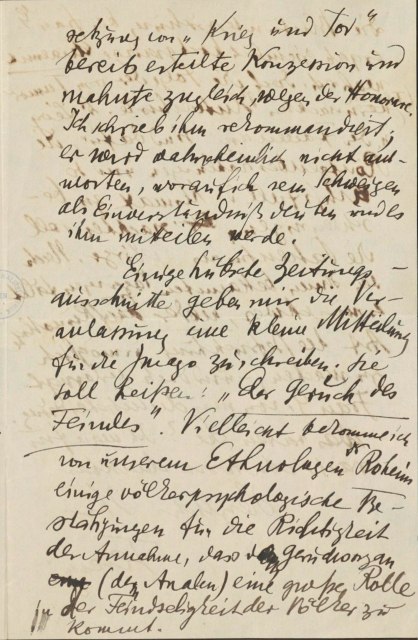 setzung von „Krieg und Tod"
bereits erteilte Konzession und
mahnte zugleich wegen des Honorars.
Ich schrieb ihm rekommandiert;
er wird wahrscheinlich nicht ant-
worten, worauf ich sein Schweigen
als Einverständniß deuten und es
ihm mitteilen werde.
Einige hübsche Zeitungs-
ausschnitte geben mir die Ver-
anlassung eine kleine Mitteilung
für die Imago zu schreiben. Sie
soll heißen: „Der Geruch des
Feindes". Vielleicht bekomme ich
von unserem Ethnologen Dr Roheim
einige völkerpsychologische Be-
stätigungen für die Richtigkeit
der Annahme, dass dem Geruchorgan
(dem Analen) eine große Rolle
in der Feindseligkeit der Völker zu
kommt.